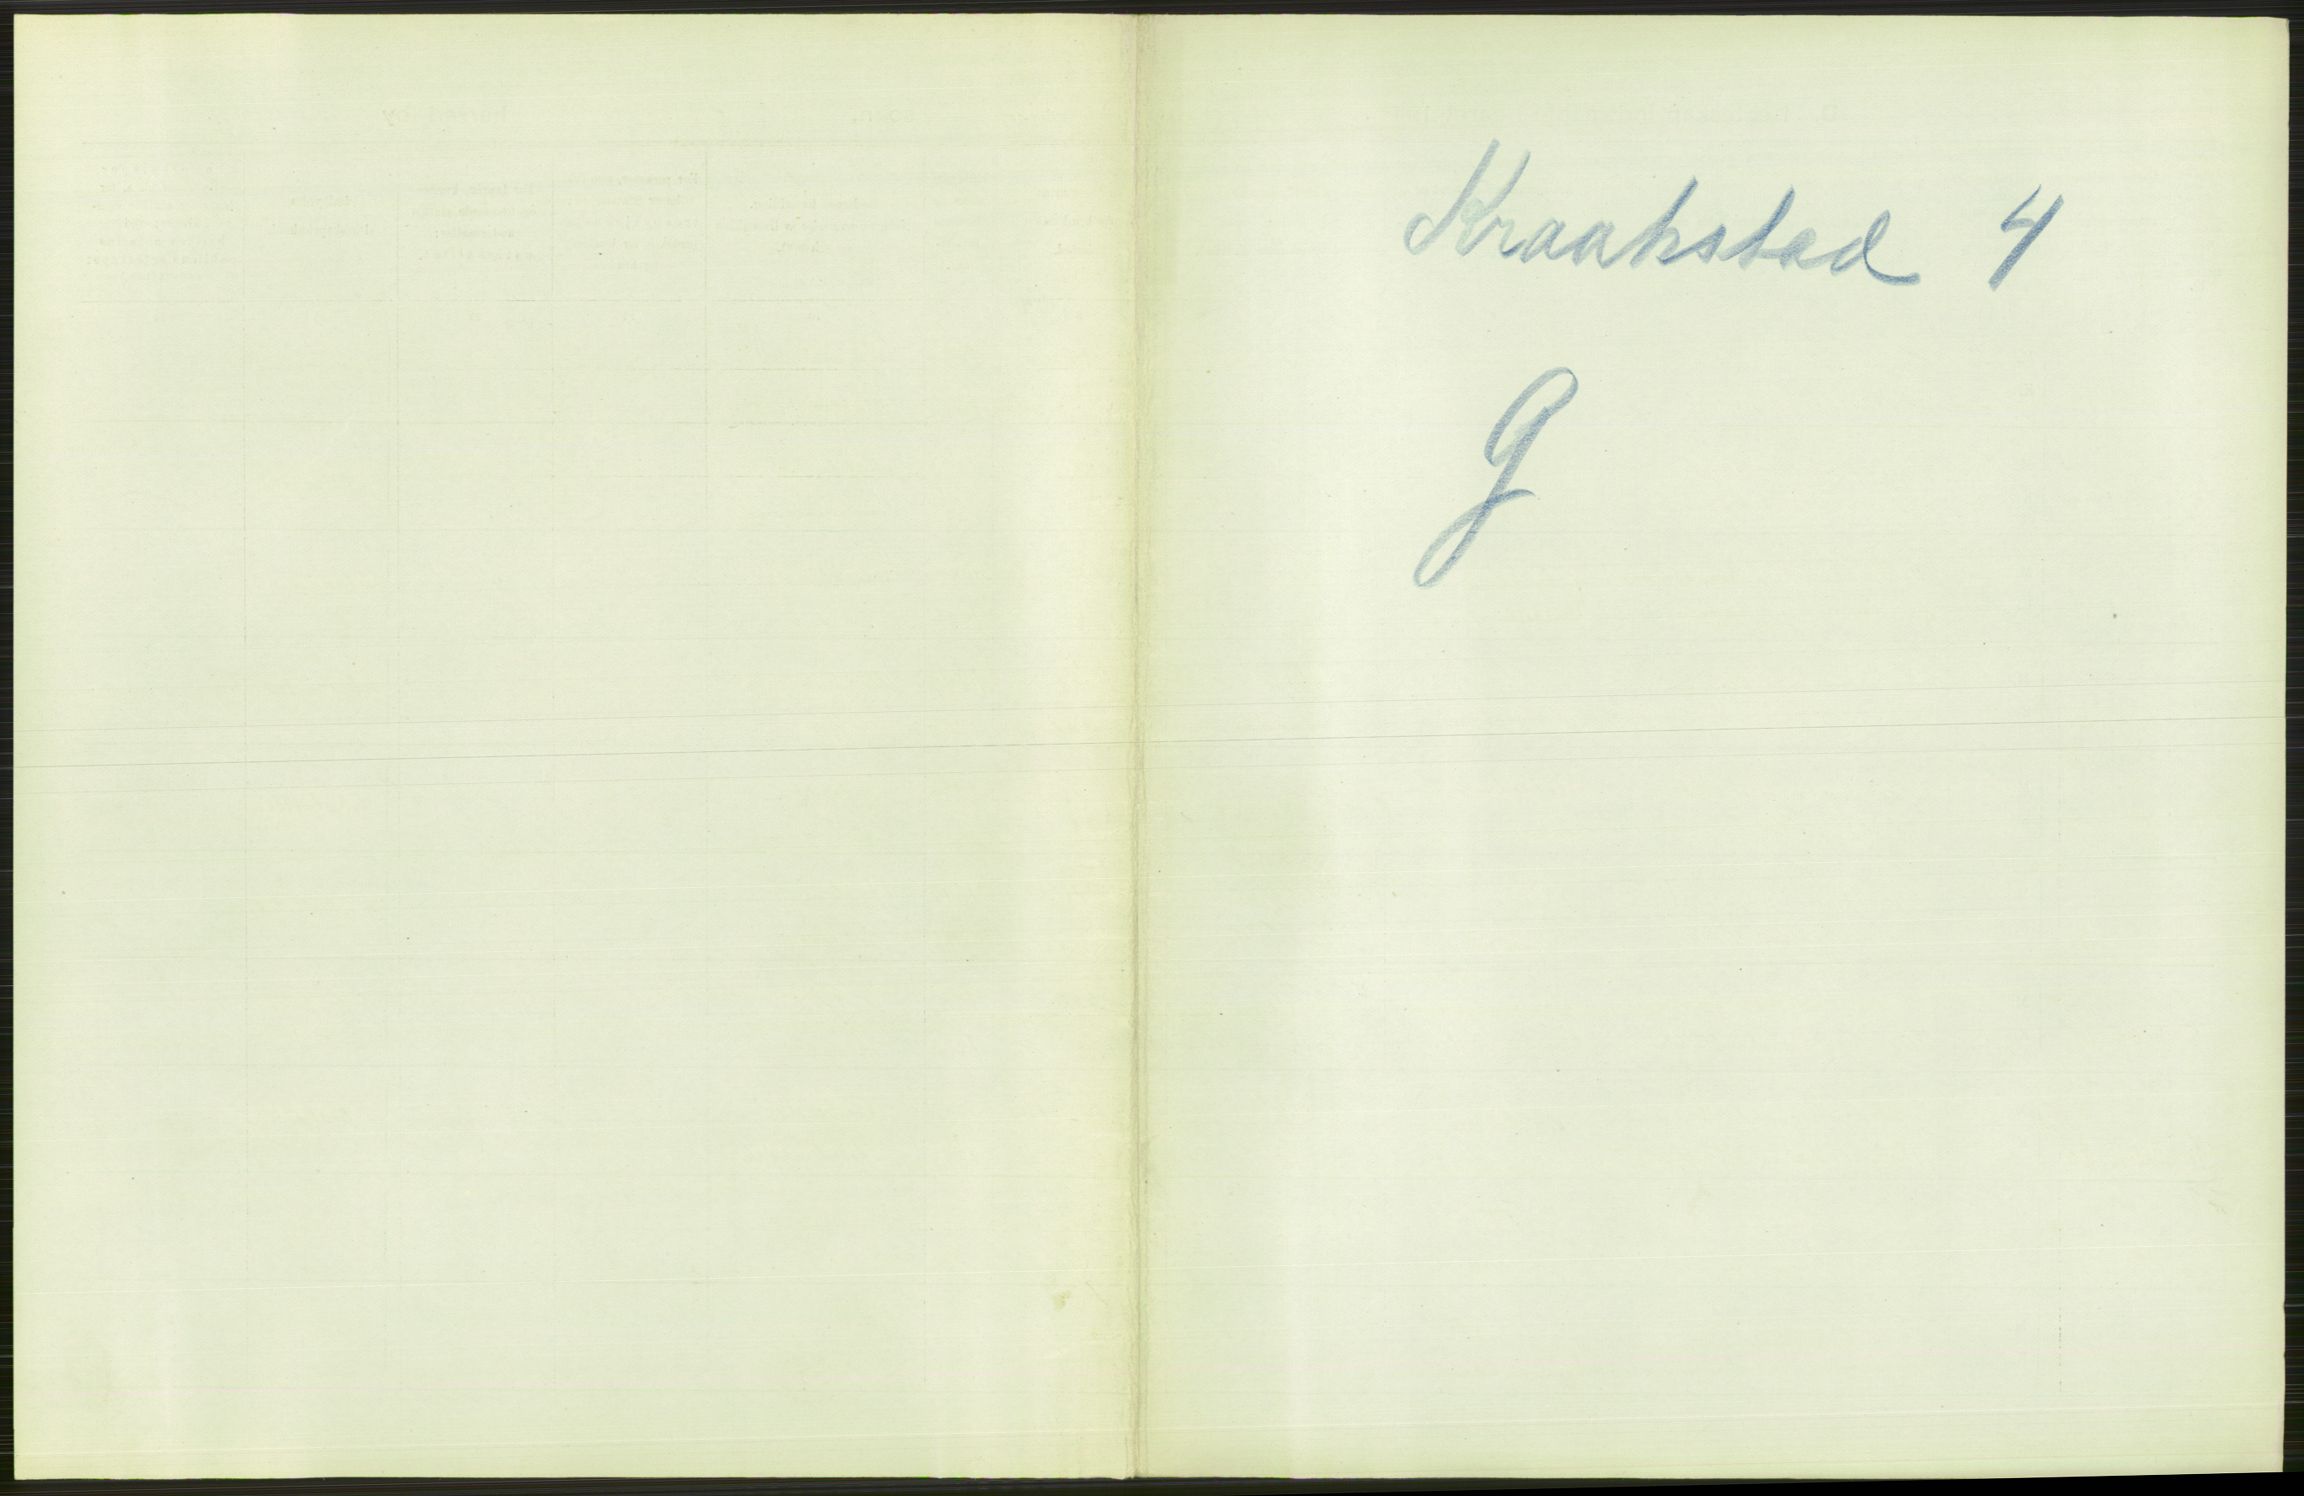 Kraakstad 4
G